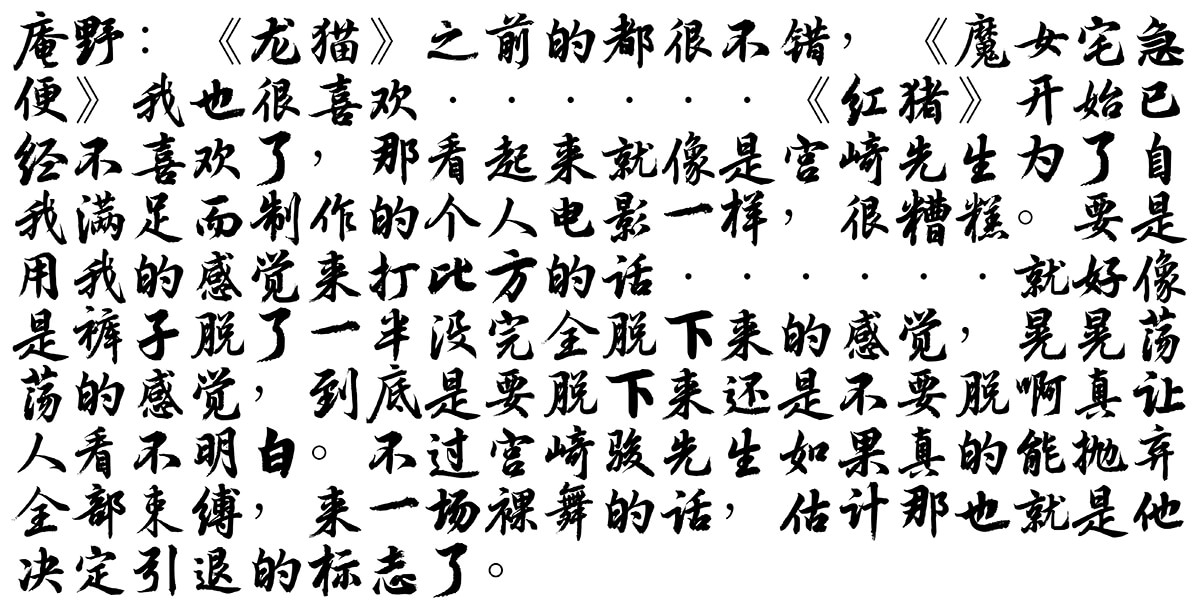 庵野：《龙猫》之前的都很不错，《魔女宅急
便》我也很喜欢······《红猪》开始已
经不喜欢了，那看起来就像是宫崎先生为了自
我满足而制作的个人电影一样，很糟糕。要是
用我的感觉来打比方的话······就好像
是裤子脱了一半没完全脱下来的感觉，晃晃荡
荡的感觉，到底是要脱下来还是不要脱啊真让
人看不明白。不过宫崎骏先生如果真的能抛弃
全部束缚，来一场裸舞的话，估计那也就是他
决定引退的标志了。